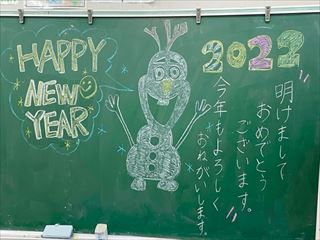 HAPPY
NEW
YEAR
2022
明けまして
おめでとう
ございます。
今年もよろしく
おねがいします。